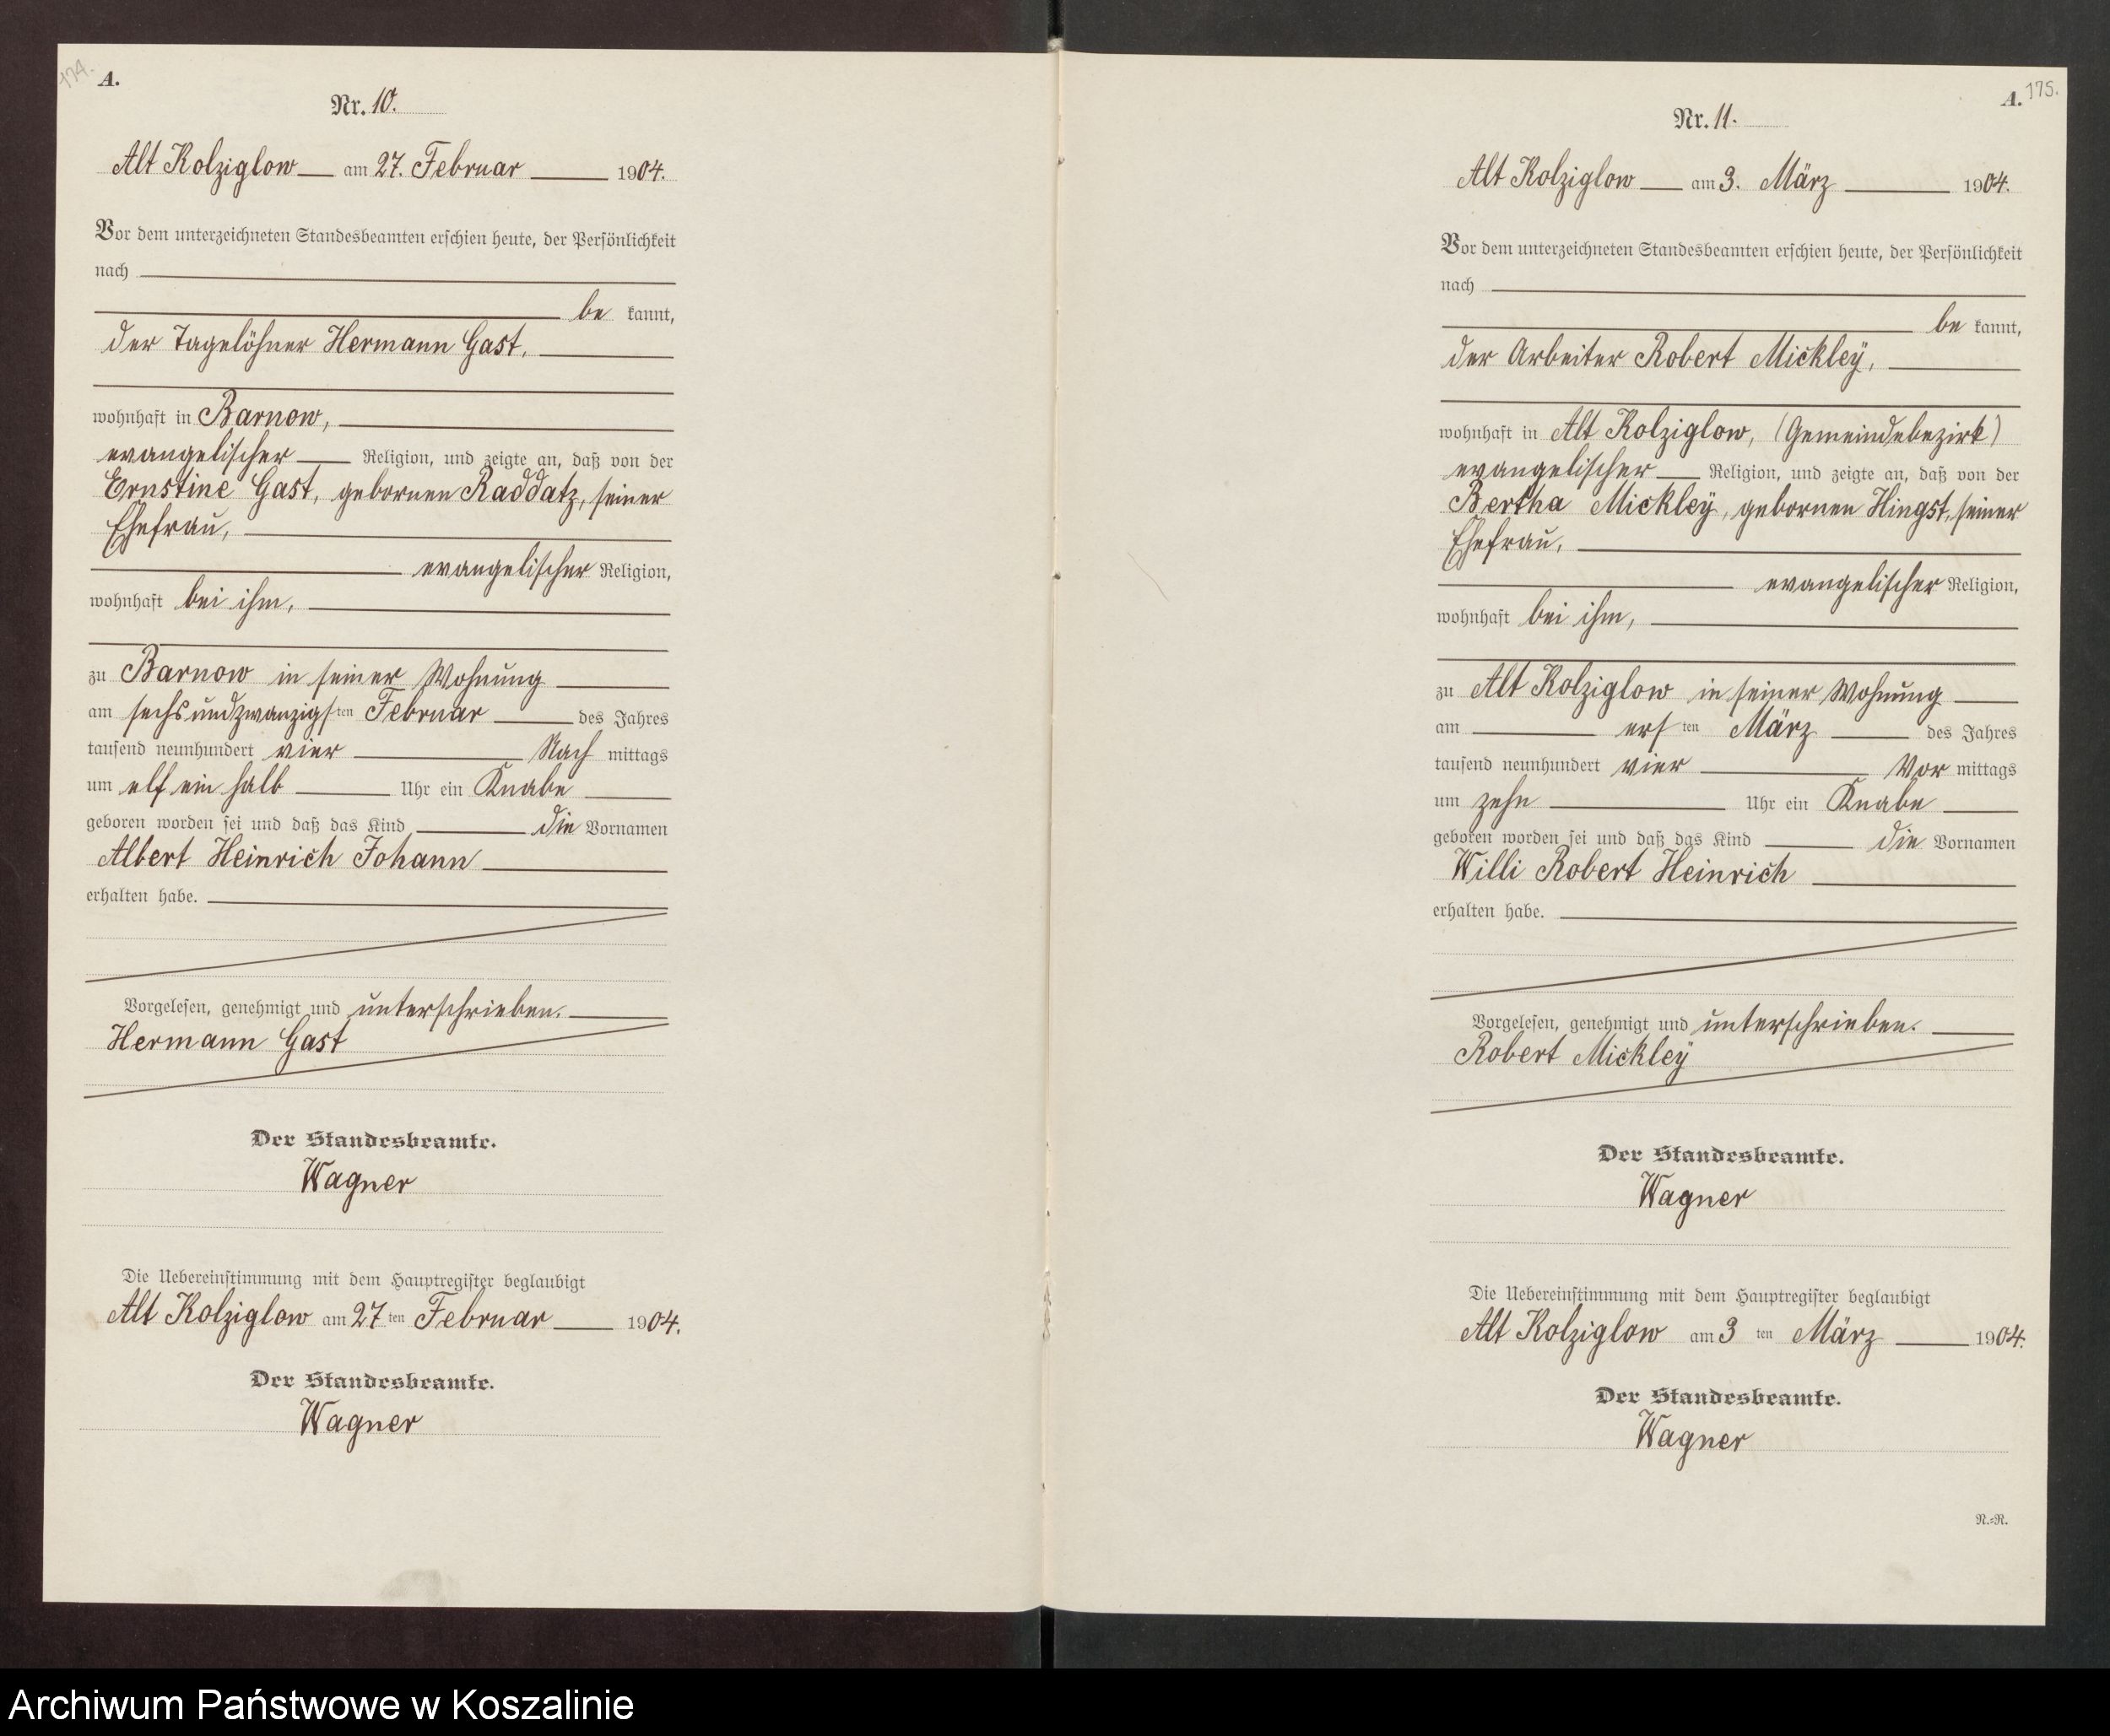 174.
A.
Nr. 10.
Alt Kolziglow am 27. Februar 1904.
Vor dem unterzeichneten Standesbeamten erschien heute, der Persönlichkeit
nach
be kannt,
der Tagelöhner Hermann Gast,
wohnhaft in Barnow,
evangelischer Religion, und zeigte an, daß von der
Ernstine Gast, gebornen Raddatz, seiner
Ehefrau,
evangelischer Religion,
wohnhaft bei ihm,
zu Barnow in seiner Wohnung
am sechsundzwanzigsten Februar des Jahres
tausend neunhundert vier Nach mittags
um elf ein halb Uhr ein Knabe
geboren worden sei und daß das Kind die Vornamen
Albert Heinrich Johann
erhalten habe.
Vorgelesen, genehmigt und unterschrieben.
Hermann Gast
Der Standesbeamte.
Wagner
Die Uebereinstimmung mit dem Hauptregister beglaubigt
Alt Kolziglow am 27 ten Februar 1904.
Der Standesbeamte.
Wagner
A. 175.
Nr. 11.
Alt Kolziglow am 3. März 1904.
Vor dem unterzeichneten Standesbeamten erschien heute, der Persönlichkeit
nach
be kannt,
der Arbeiter Robert Mickley,
wohnhaft in Alt Kolziglow, (Gemeindebezirk)
evangelischer Religion, und zeigte an, daß von der
Bertha Mickley, gebornen Hingst, seiner
Ehefrau,
evangelischer Religion,
wohnhaft bei ihm,
zu Alt Kolziglow in seiner Wohnung
am ersten März des Jahres
tausend neunhundert vier Vor mittags
um zehn Uhr ein Knabe
geboren worden sei und daß das Kind die Vornamen
Willi Robert Heinrich
erhalten habe.
Vorgelesen, genehmigt und unterschrieben.
Robert Mickley
Der Standesbeamte.
Wagner
Die Uebereinstimmung mit dem Hauptregister beglaubigt
Alt Kolziglow am 3 ten März 1904.
Der Standesbeamte.
Wagner
N.=R.
Archiwum Państwowe w Koszalinie